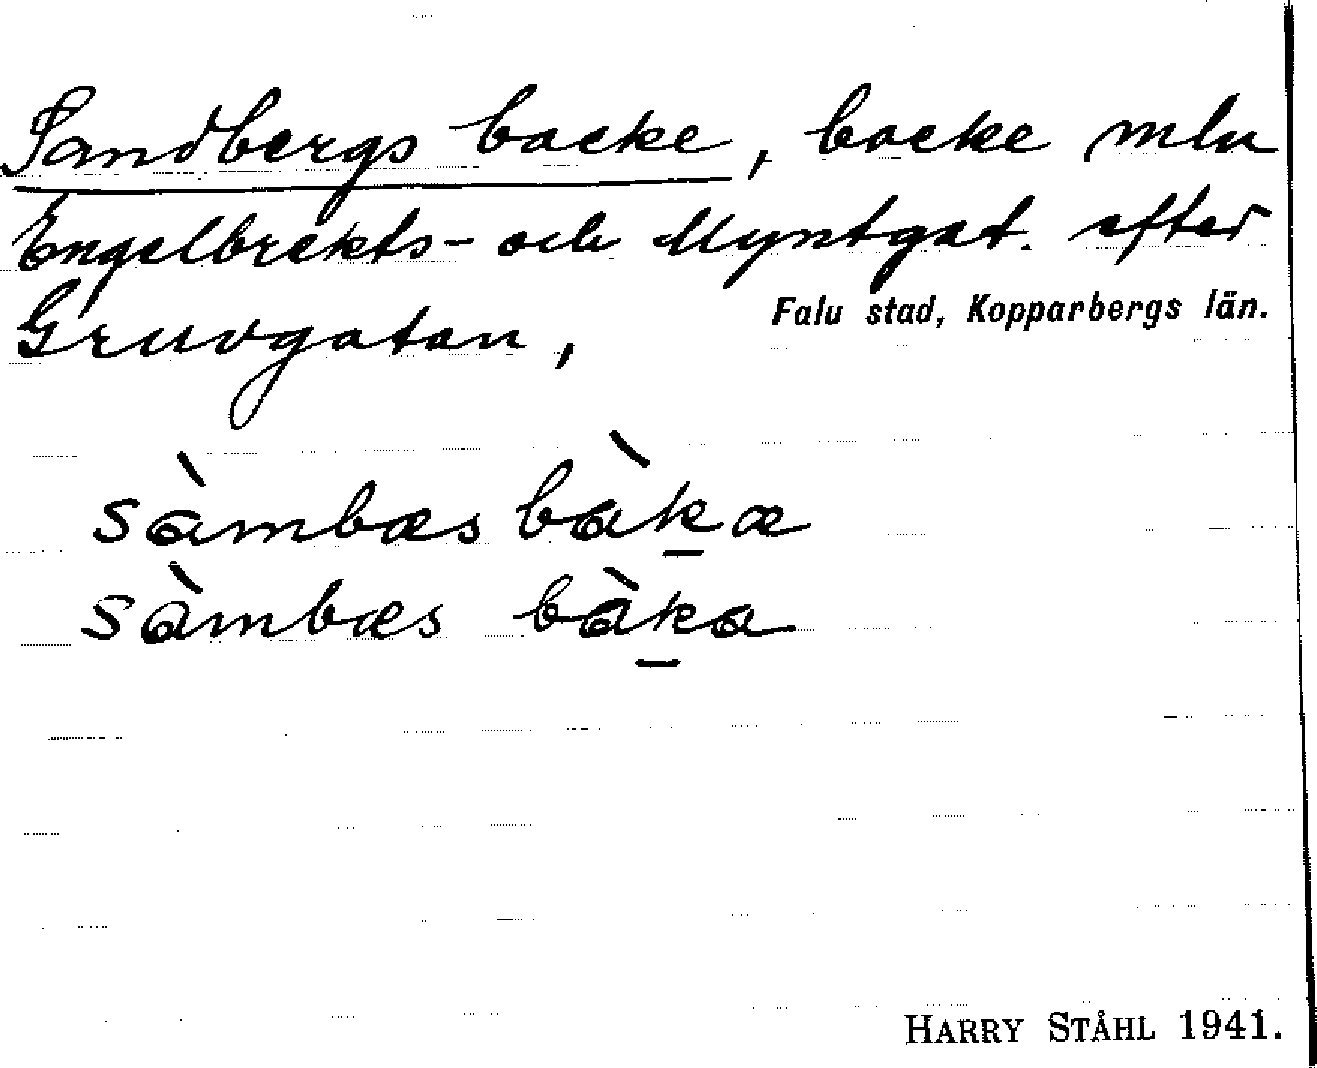 Sandbergs backe, backe mln
Engelbrekts- och Myntgat. efter
Gruvgatan,
Falu stad, Kopparbergs län.
sàmbæs bàḵæ
sàmbæs bàḵa
HARRY STÅHL 1941.